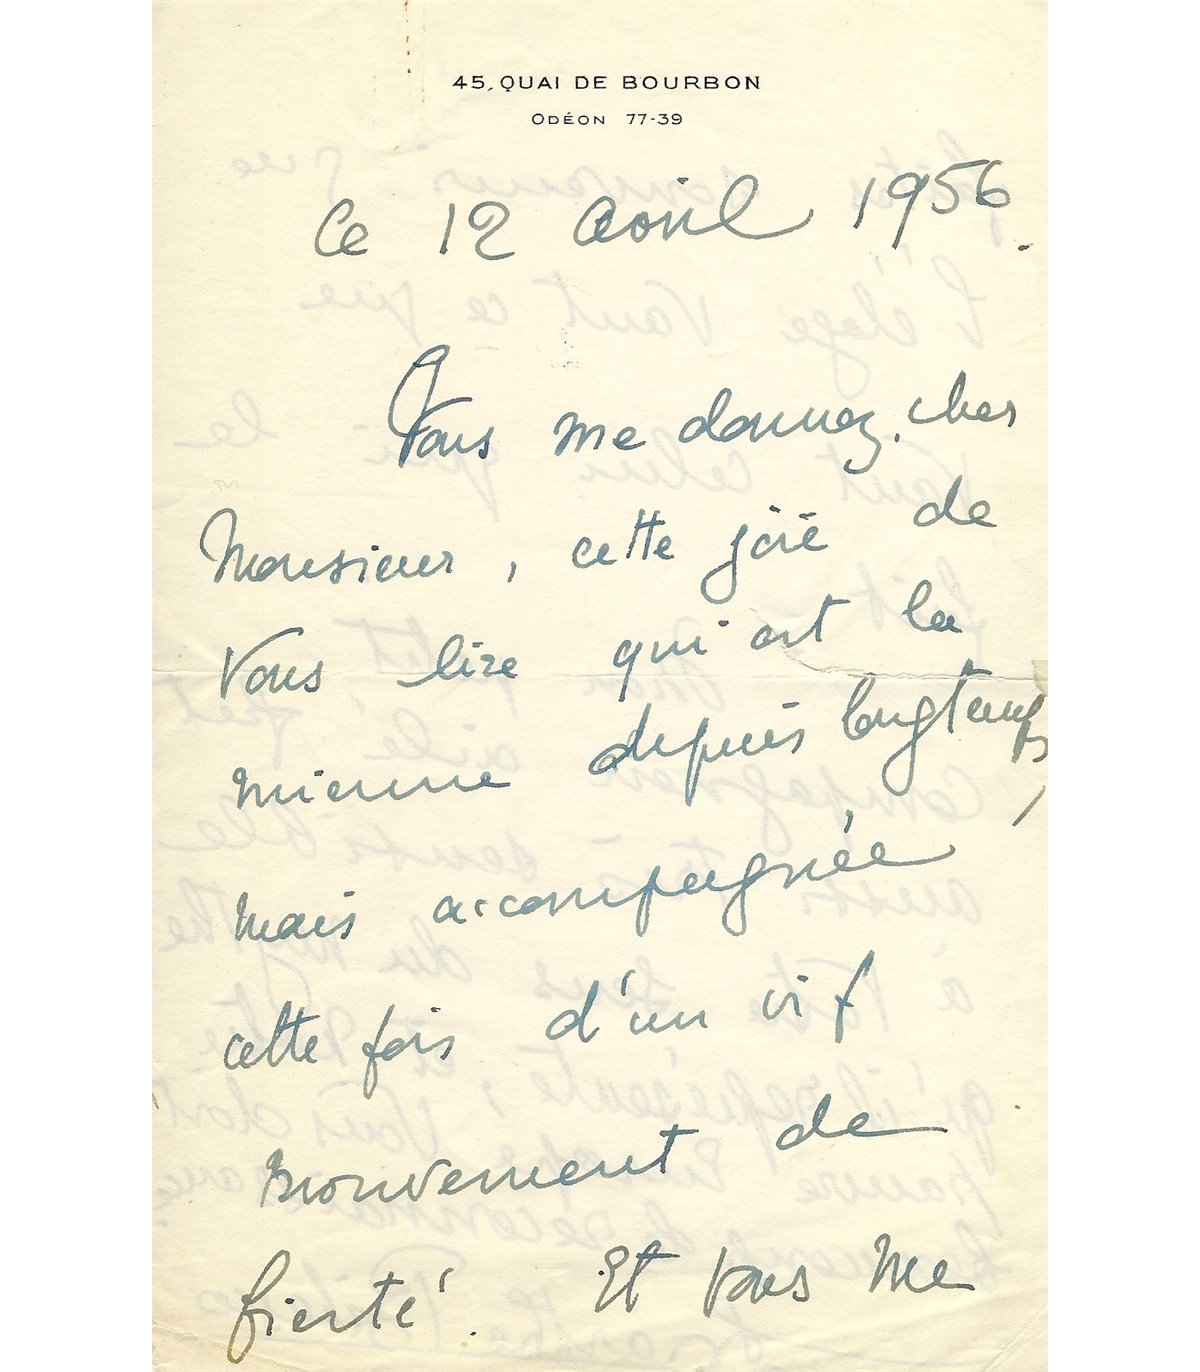 45, QUAI DE BOURBON
ODÉON 77-39
Ce 12 avril 1956.
Vous me donnez, cher
Monsieur, cette joie de
vous lire qui est la
mienne depuis longtemps,
mais accompagnée
cette fois d'un vif
mouvement de
fierté. Et vous me